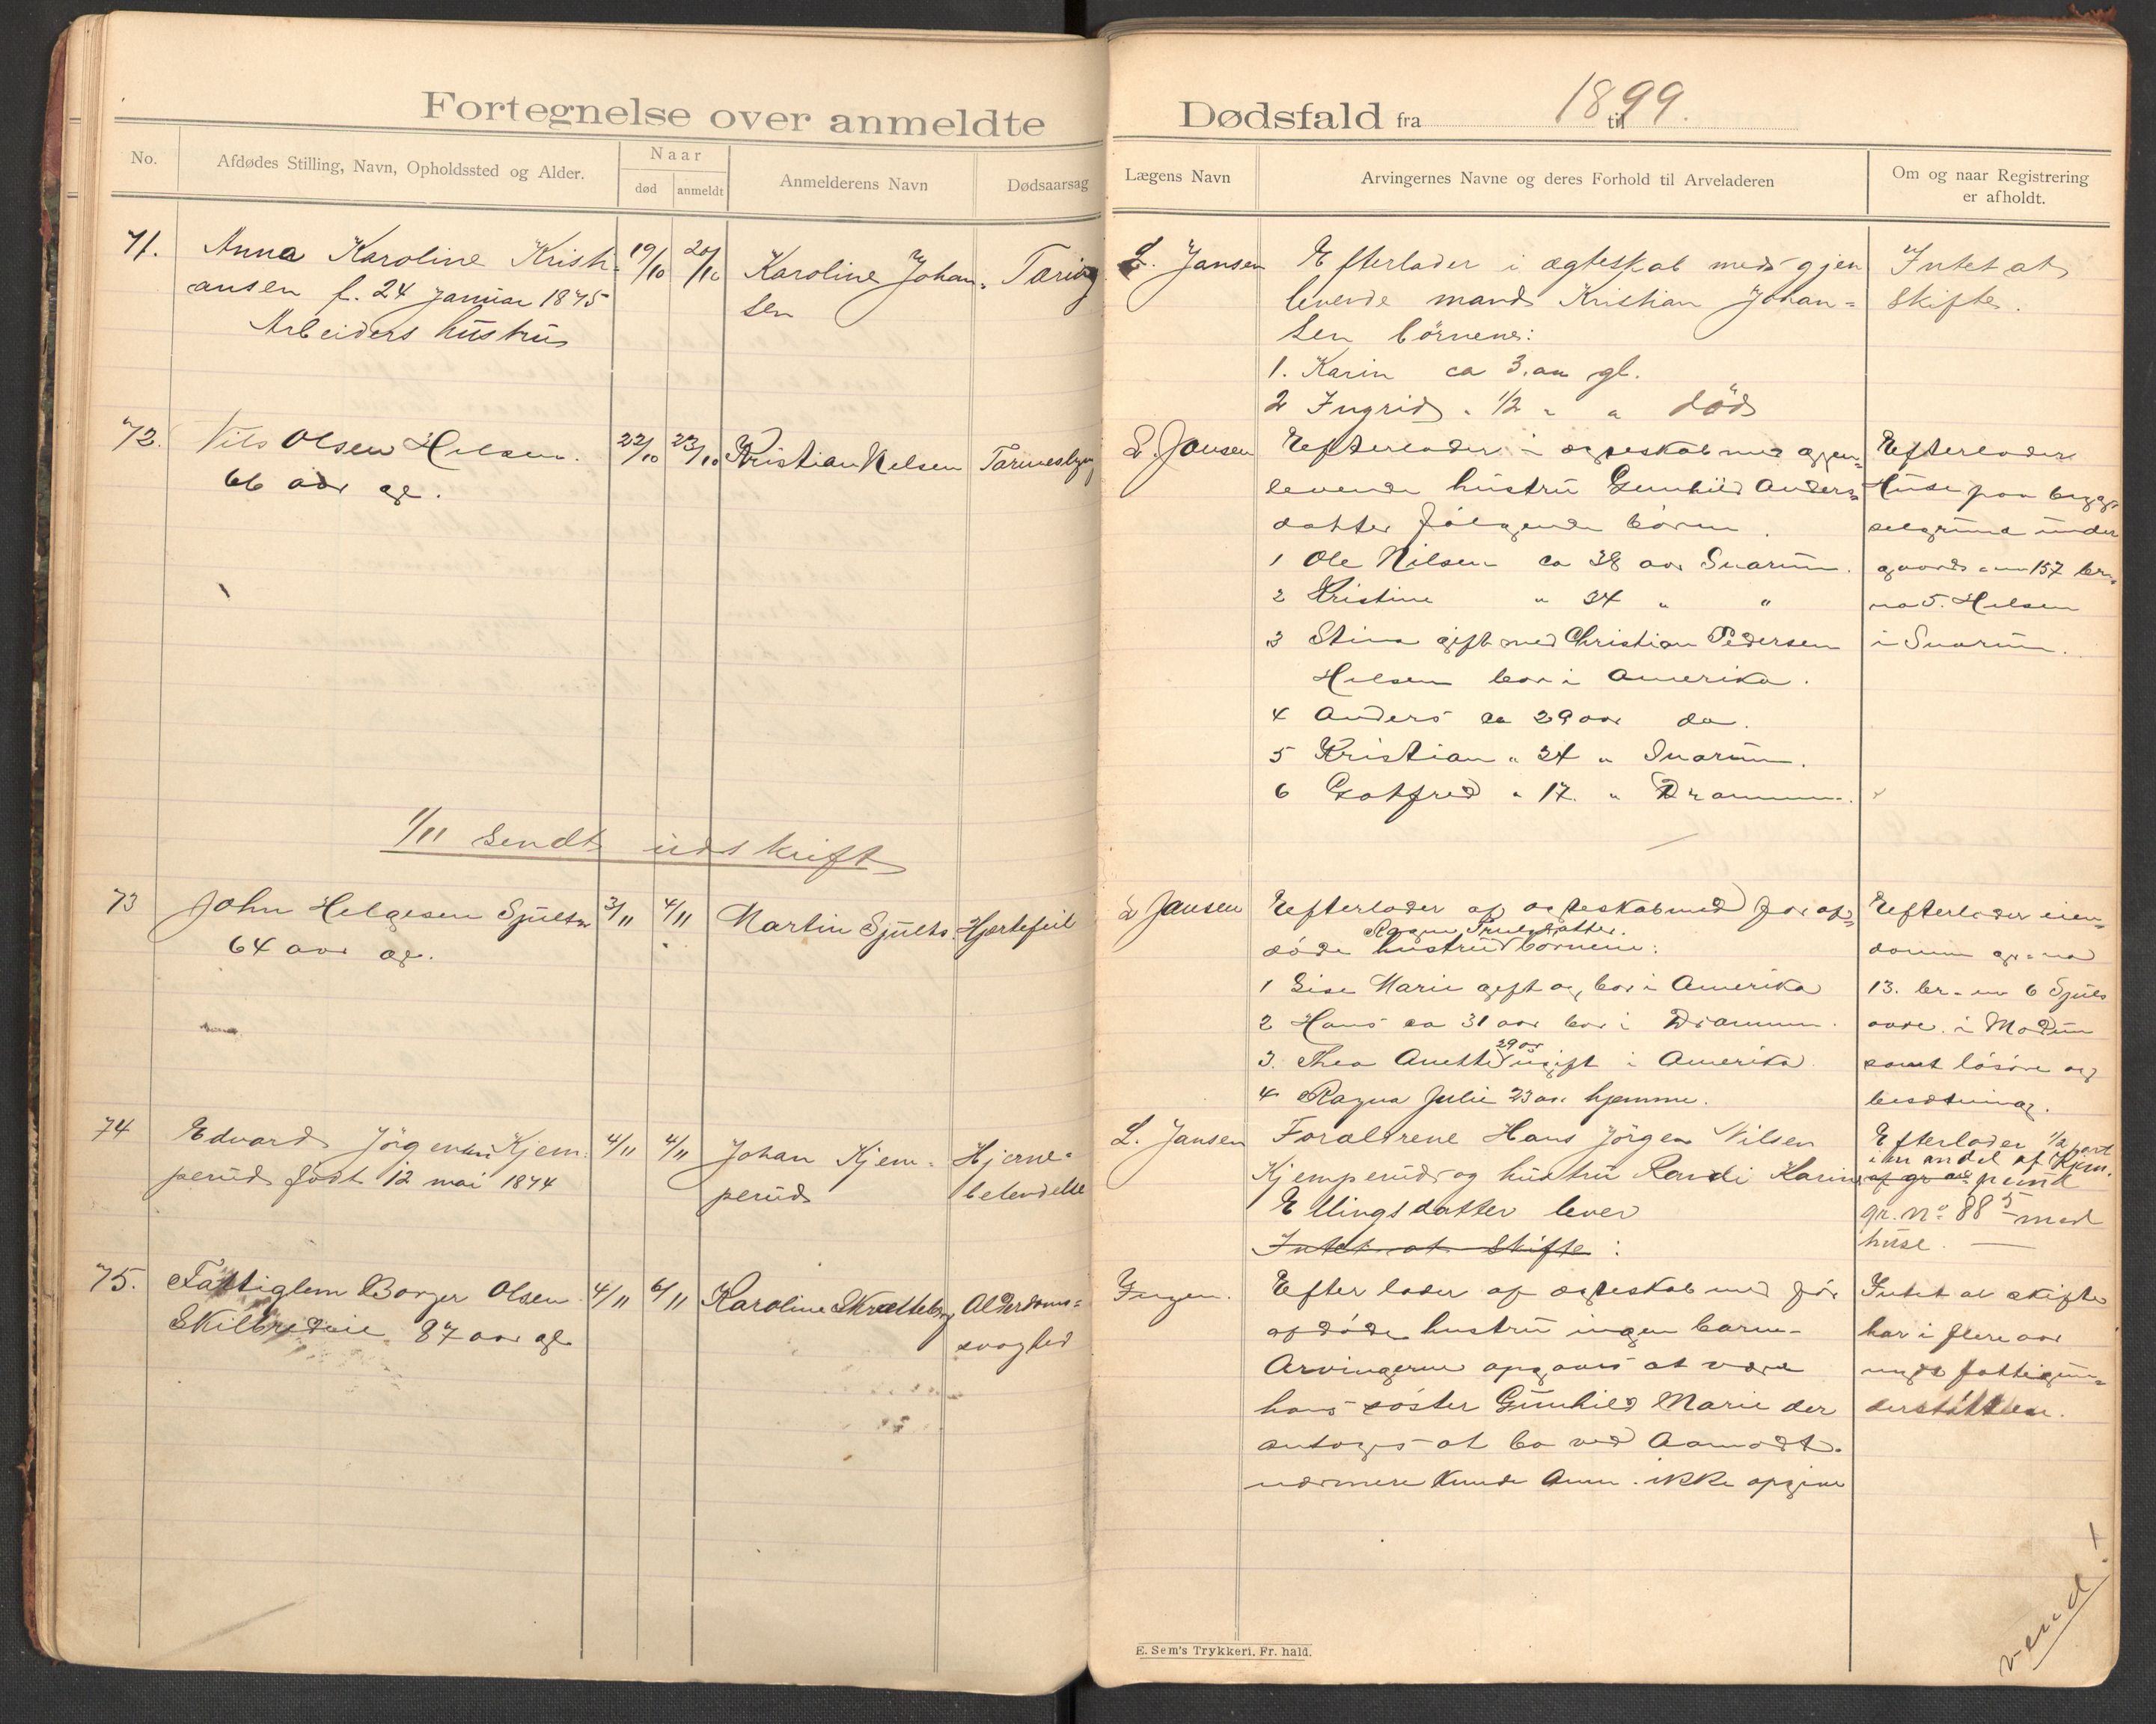 Fortegnelse over anmeldte
Dødsfald fra 1899. til
No.
Afdødes Stilling, Navn, Opholdssted og Alder.
Naar
død
anmeldt
Anmelderens Navn
Dødsaarsag
Lægens Navn
Arvingernes Navne og deres Forhold til Arveladeren
Om og naar Registrering
er afholdt.
71.
Anna Karoline Kristi-
ansen f. 24 januar 1875
Arbeiders hustru
19/10
20/10
Karoline Johan-
sen
Tæring
L. Jansen
Efterlader i ægteskab med gjen
levende mand Kristian Johan=
sen børnene:
1. Karin ca 3. aar gl.
2 Ingrid " 1/2 " " död
Intet at
skifte.
72.
Nils Olsen Helsen.
66 aar gl.
22/10
23/10
Kristian Nelsen
L. Jansen
Efterlader i ægteskab med gjen=
levende hustru Gunhild Anders=
datter følgende børn.
1 Ole Nilsen ca 38 aar Snarum.
2 Kristine " 34 " "
3 Stina gift med Christian Pedersen
Helsen bor i Amerika.
4 Anders ca 29 aar do.
5 Kristian " 24 " Snarum.
6 Gotfred " 17. " Drammen.
Efterlader
Huse paa byg=
selgrund under
gaards no 157 br.
no 5. Helsen
i Snarum.
1/11 sendt udskrift
73
John Helgesen
64 aar gl.
3/11
4/11
Martin
Hjertefeil
L Jansen
Efterlader af ægteskab med før af=
døde hustru børnene:
1 Lise Marie gift og bor i Amerika
2 Hans ca 31 aar bor i Drammen.
3. Thea Anette 29 aar ugift i Amerika
4 Ragna Julie 23 aar hjemme.
Efterlader eien=
dommen gr. no
13. br. no 6
i Modum
samt løsøre og
besætning.
74
Edvard Jørgensen Kjem-
perud født 12 mai 1874
4/11
4/11
Johan Kjem-
perud
Hjerne-
betendelse
L. Jansen
Forældrene Hans Jørgen Nilsen
Kjemperud og hustru Randi Karine
Ellingsdatter lever
Intet at skifte:
Efterlader 1/2 part
i en andel af Kjem.
af gr no perud
gr. no 88 5 med
huse.
75.
Fattiglem Borger Olsen
87 aar gl
4/11
6/11
Karoline
Alderdoms=
svaghed
Ingen.
Efterlader af ægteskab med før
afdøde hustru ingen barn-
Arvingerne opgaves at være
hans søster Gunhild Marie der
antages at bo ved Aamodt.
nærmere kunde Anm. ikke opgive
Intet at skifte
har i flere aar
nydt fattigun=
derstøttelse.
vend!
E. Sem's Trykkeri, Fr.hald.